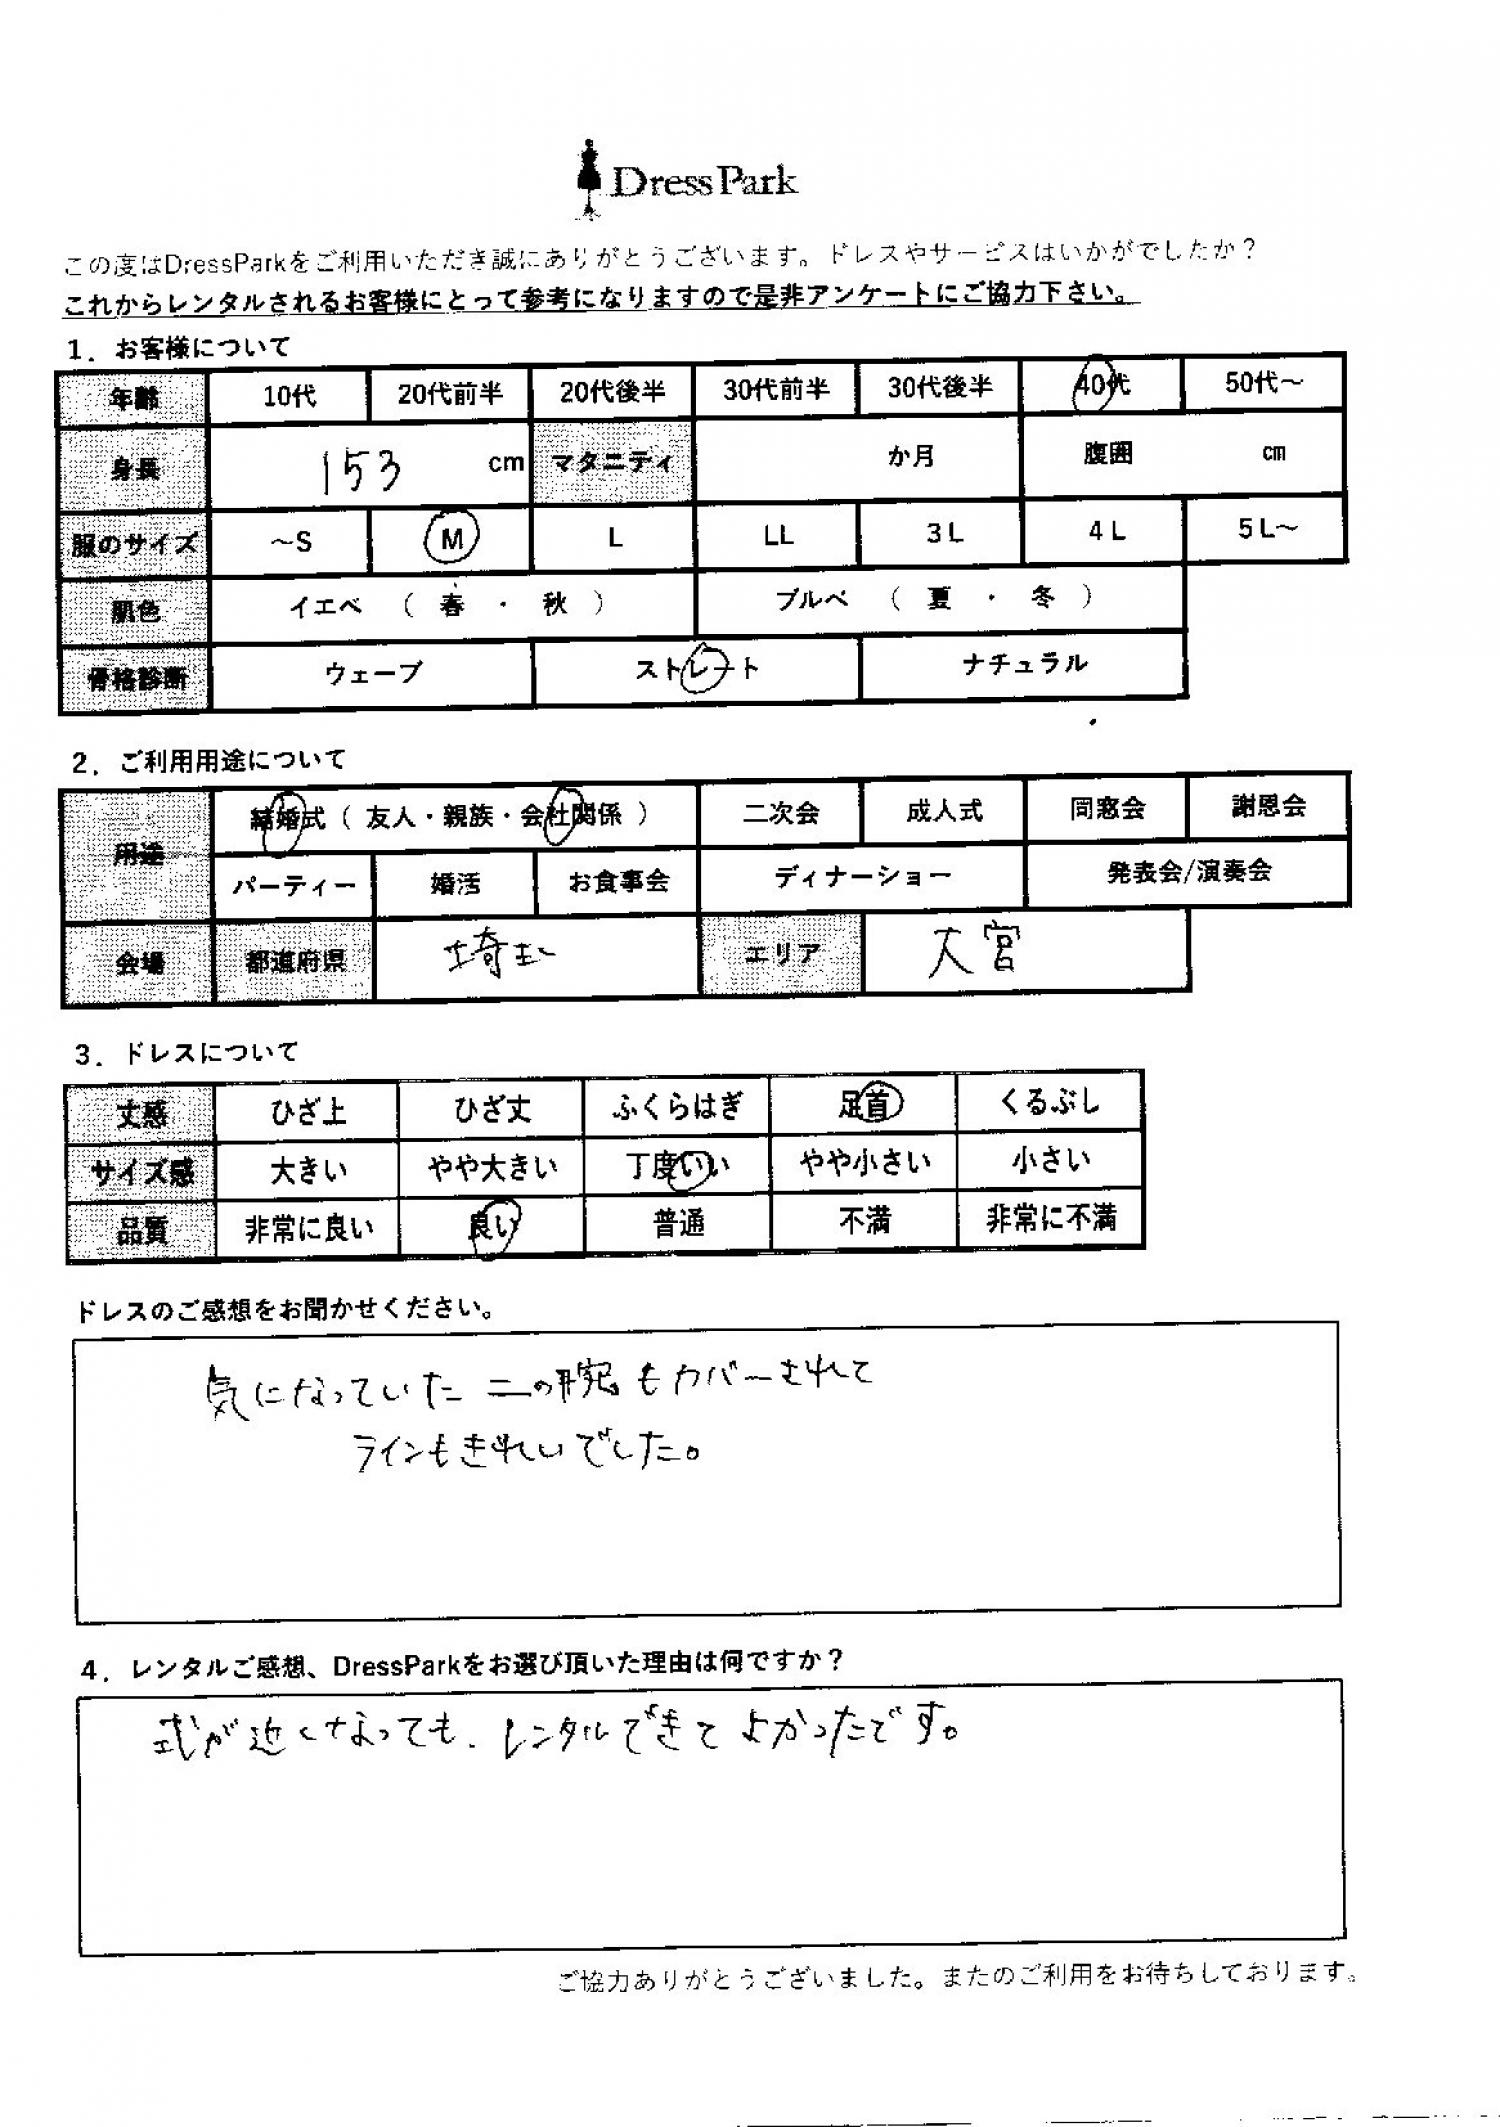 DressPark
この度はDressParkをご利用いただき誠にありがとうございます。ドレスやサービスはいかがでしたか？
これからレンタルされるお客様にとって参考になりますので是非アンケートにご協力下さい。
1．お客様について
年齢 10代 20代前半 20代後半 30代前半 30代後半 40代 50代～
身長 153 cm マタニティ か月 腹囲 cm
服のサイズ ～S M L LL 3L 4L 5L～
肌色 イエベ （ 春 ・ 秋 ） ブルベ （ 夏 ・ 冬 ）
骨格診断 ウェーブ ストレート ナチュラル
2．ご利用用途について
用途 結婚式（ 友人・親族・会社関係 ） 二次会 成人式 同窓会 謝恩会
パーティー 婚活 お食事会 ディナーショー 発表会/演奏会
会場 都道府県 埼玉 エリア 大宮
3．ドレスについて
丈感 ひざ上 ひざ丈 ふくらはぎ 足首 くるぶし
サイズ感 大きい やや大きい 丁度いい やや小さい 小さい
品質 非常に良い 良い 普通 不満 非常に不満
ドレスのご感想をお聞かせください。
気になっていた二の腕もカバーされて
ラインもきれいでした。
4．レンタルご感想、DressParkをお選び頂いた理由は何ですか？
式が近くなっても、レンタルできてよかったです。
ご協力ありがとうございました。またのご利用をお待ちしております。